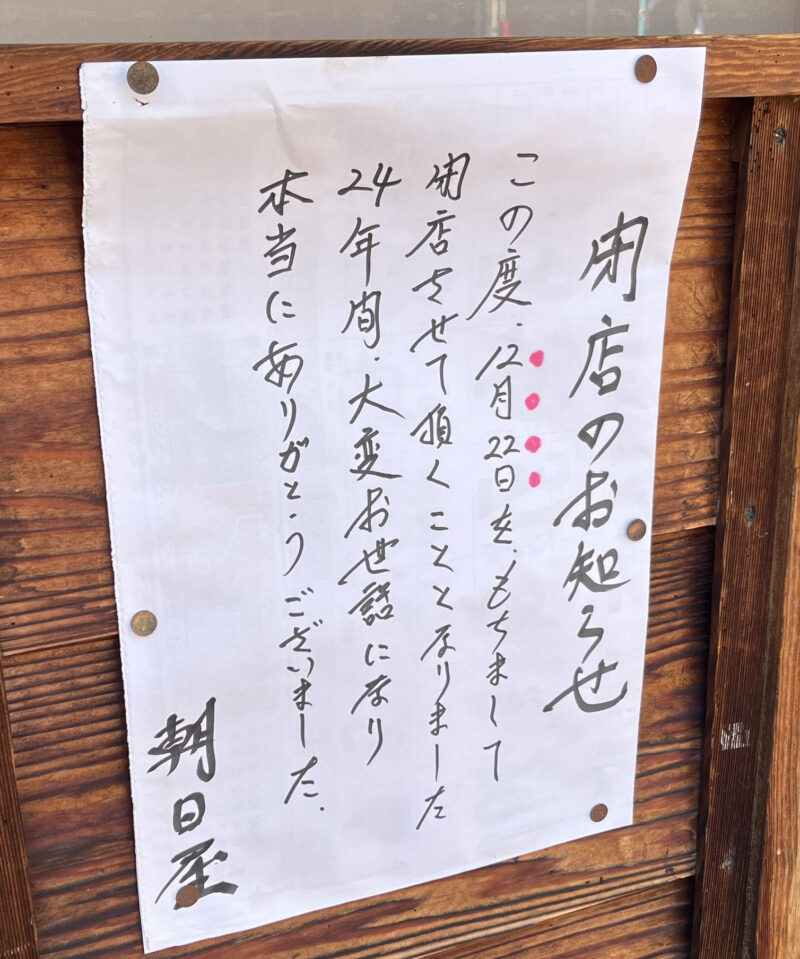 閉店のお知らせ
この度、12月22日を、もちまして
閉店させて頂くこととなりました
24年間、大変お世話になり
本当にありがとうございました。
朝日屋